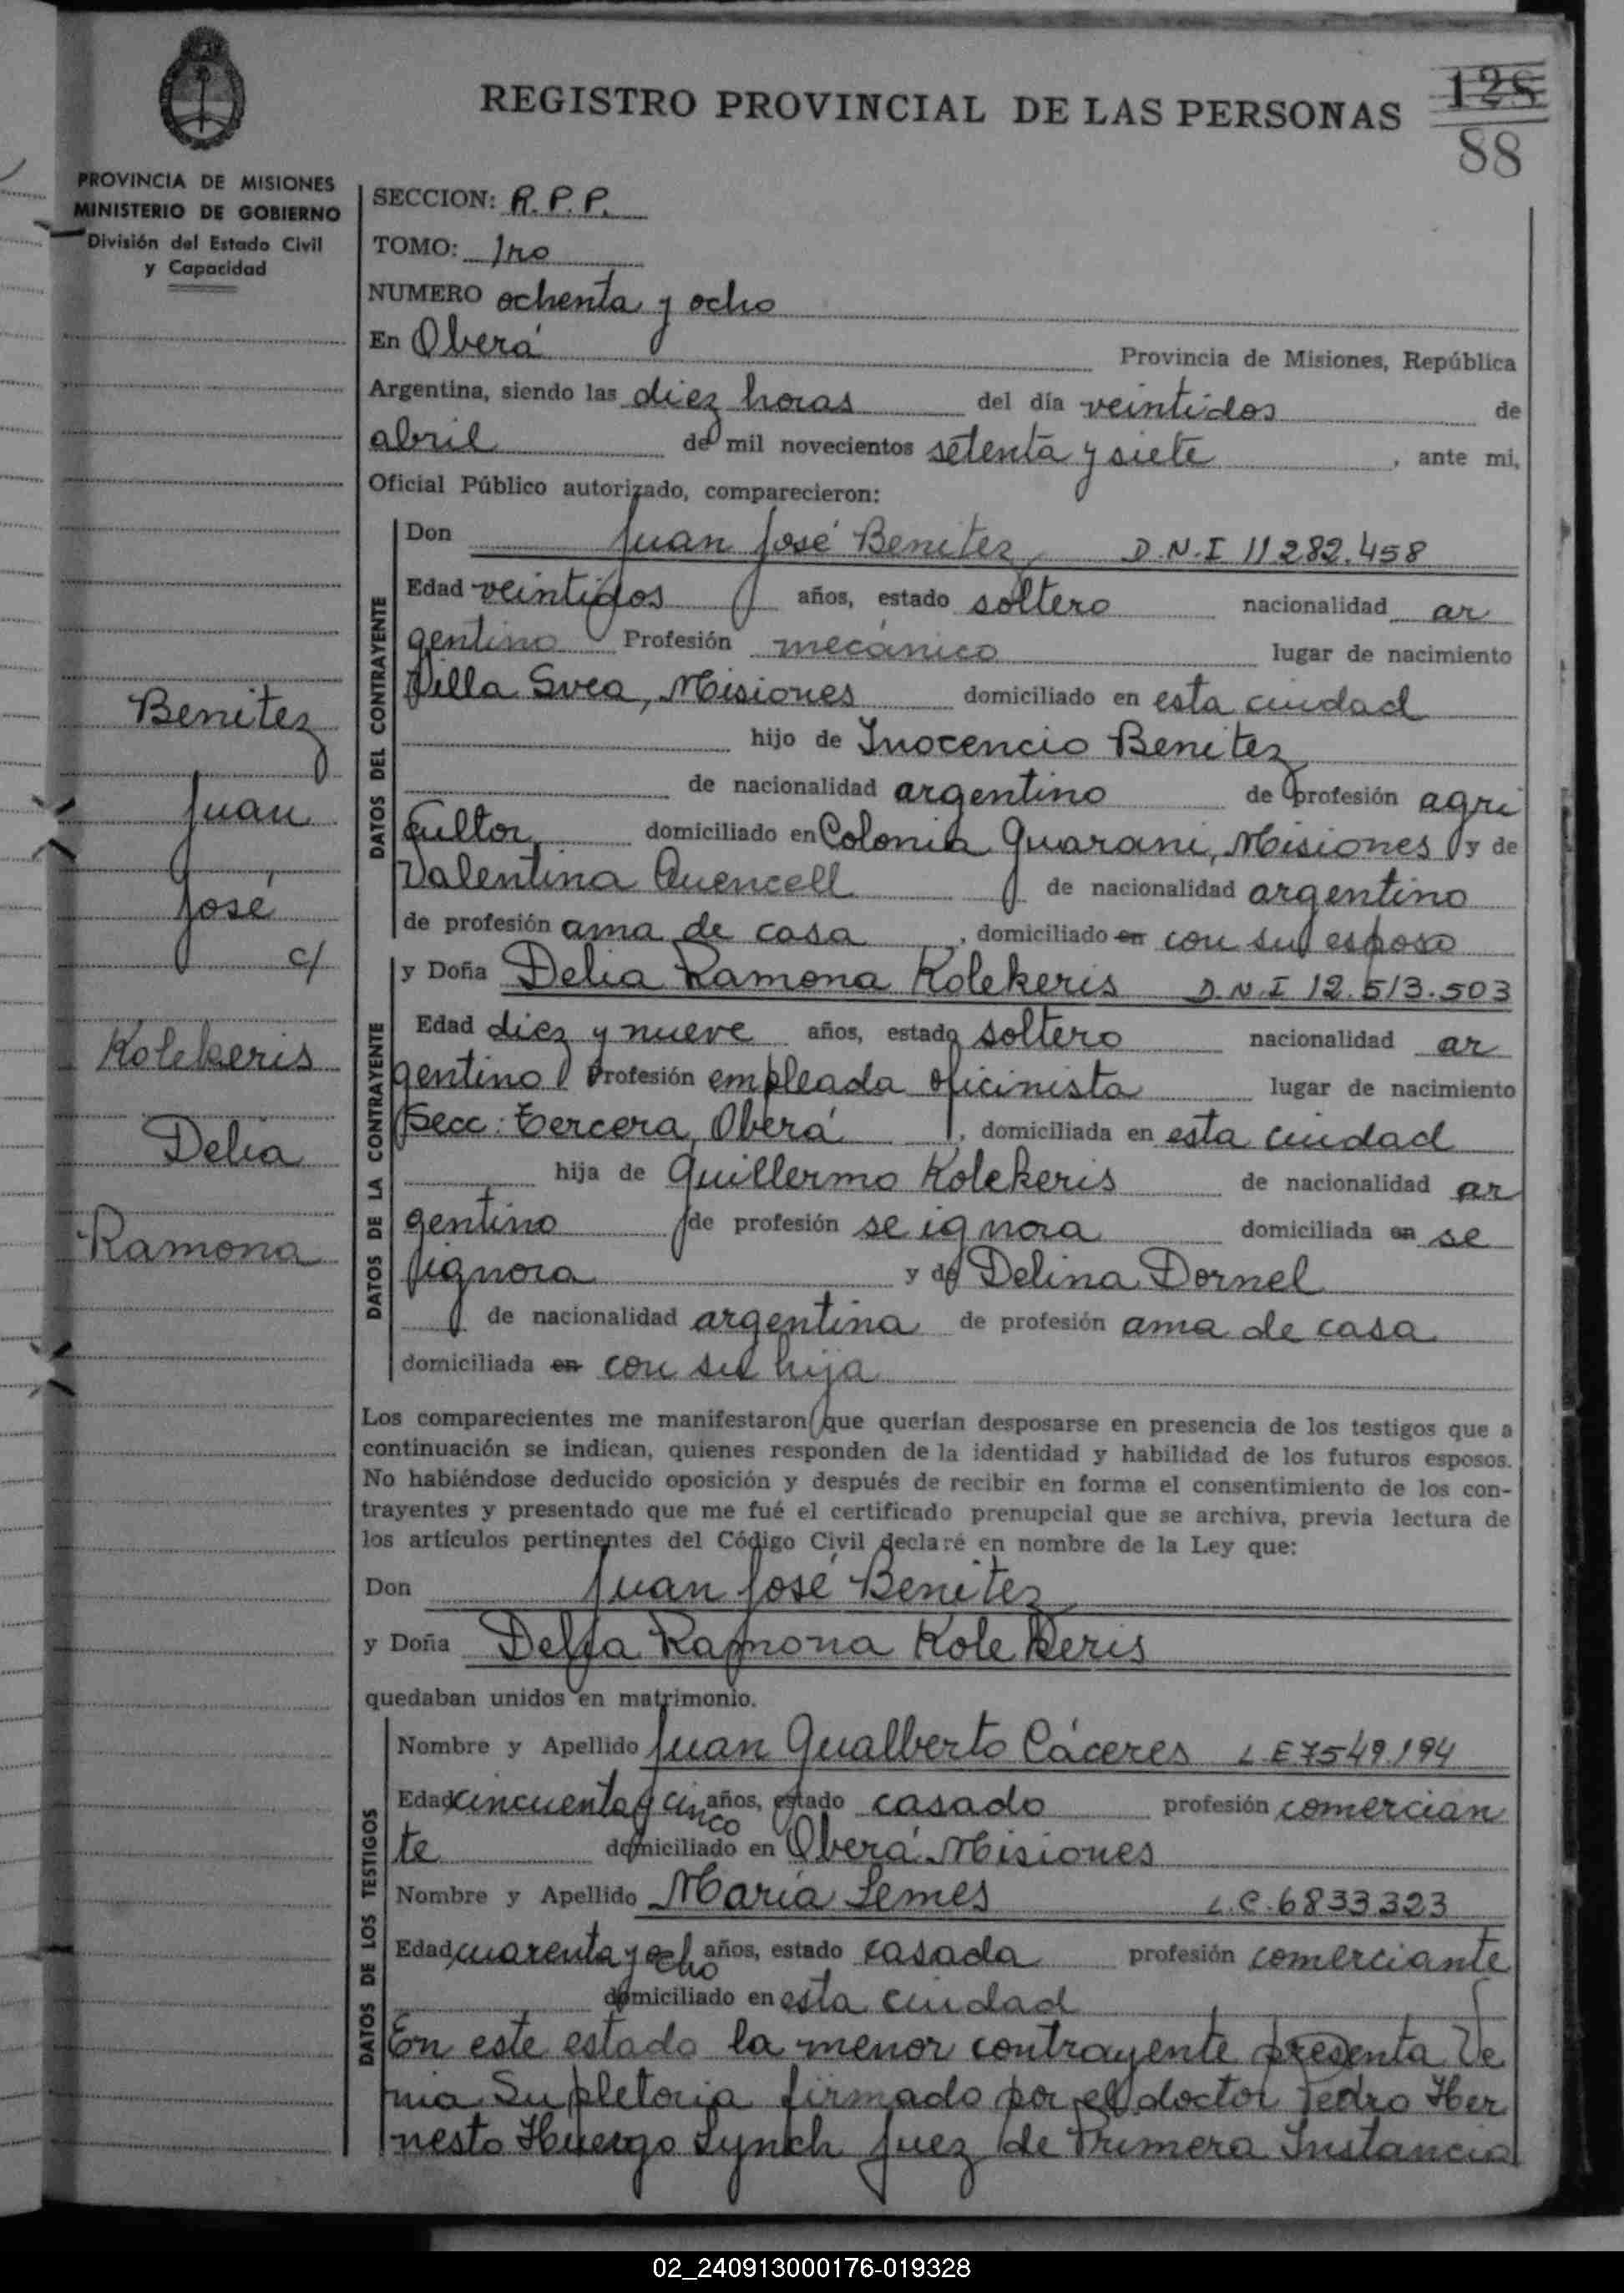 REGISTRO PROVINCIAL DE LAS PERSONAS
128
88
PROVINCIA DE MISIONES
MINISTERIO DE GOBIERNO
División del Estado Civil
y Capacidad
SECCION: R.P.P.
TOMO: 1ro
NUMERO ochenta y ocho
En Oberá Provincia de Misiones, República
Argentina, siendo las diez horas del día veintidos de
abril de mil novecientos setenta y siete, ante mi,
Oficial Público autorizado, comparecieron:
DATOS DEL CONTRAYENTE
Don Juan José Benitez D.N.I 11.282.458
Edad veintidos años, estado soltero nacionalidad ar
gentino Profesión mecánico lugar de nacimiento
Villa Svea, Misiones domiciliado en esta ciudad
hijo de Inocencio Benitez
de nacionalidad argentino de profesión agri
cultor domiciliado en Colonia Guarani, Misiones y de
Valentina Quencell de nacionalidad argentino
de profesión ama de casa, domiciliado en con su esposo
Benitez
Juan
José
c/
Kolekeris
Delia
Ramona
DATOS DE LA CONTRAYENTE
y Doña Delia Ramona Kolekeris D.N.I 12.513.503
Edad diez y nueve años, estado soltero nacionalidad ar
gentino Profesión empleada oficinista lugar de nacimiento
Secc: Tercera, Oberá, domiciliada en esta ciudad
hija de Guillermo Kolekeris de nacionalidad ar
gentino de profesión se ignora domiciliada en se
ignora y de Delina Dornel
de nacionalidad argentina de profesión ama de casa
domiciliada en con su hija
Los comparecientes me manifestaron que querían desposarse en presencia de los testigos que a
continuación se indican, quienes responden de la identidad y habilidad de los futuros esposos.
No habiéndose deducido oposición y después de recibir en forma el consentimiento de los con-
trayentes y presentado que me fué el certificado prenupcial que se archiva, previa lectura de
los artículos pertinentes del Código Civil declaré en nombre de la Ley que:
Don Juan José Benitez
y Doña Delia Ramona Kolekeris
quedaban unidos en matrimonio.
DATOS DE LOS TESTIGOS
Nombre y Apellido Juan Gualberto Cáceres L.E 7549.194
Edad cincuenta y cinco años, estado casado profesión comercian
te domiciliado en Oberá Misiones
Nombre y Apellido María Lemes L.C. 6833.323
Edad cuarenta y ocho años, estado casada profesión comerciante
domiciliado en esta ciudad
En este estado la menor contrayente presenta Ve
nia Supletoria firmado por el doctor Pedro Her
nesto Huergo Lynch Juez de Primera Instancia
02_240913000176-019328